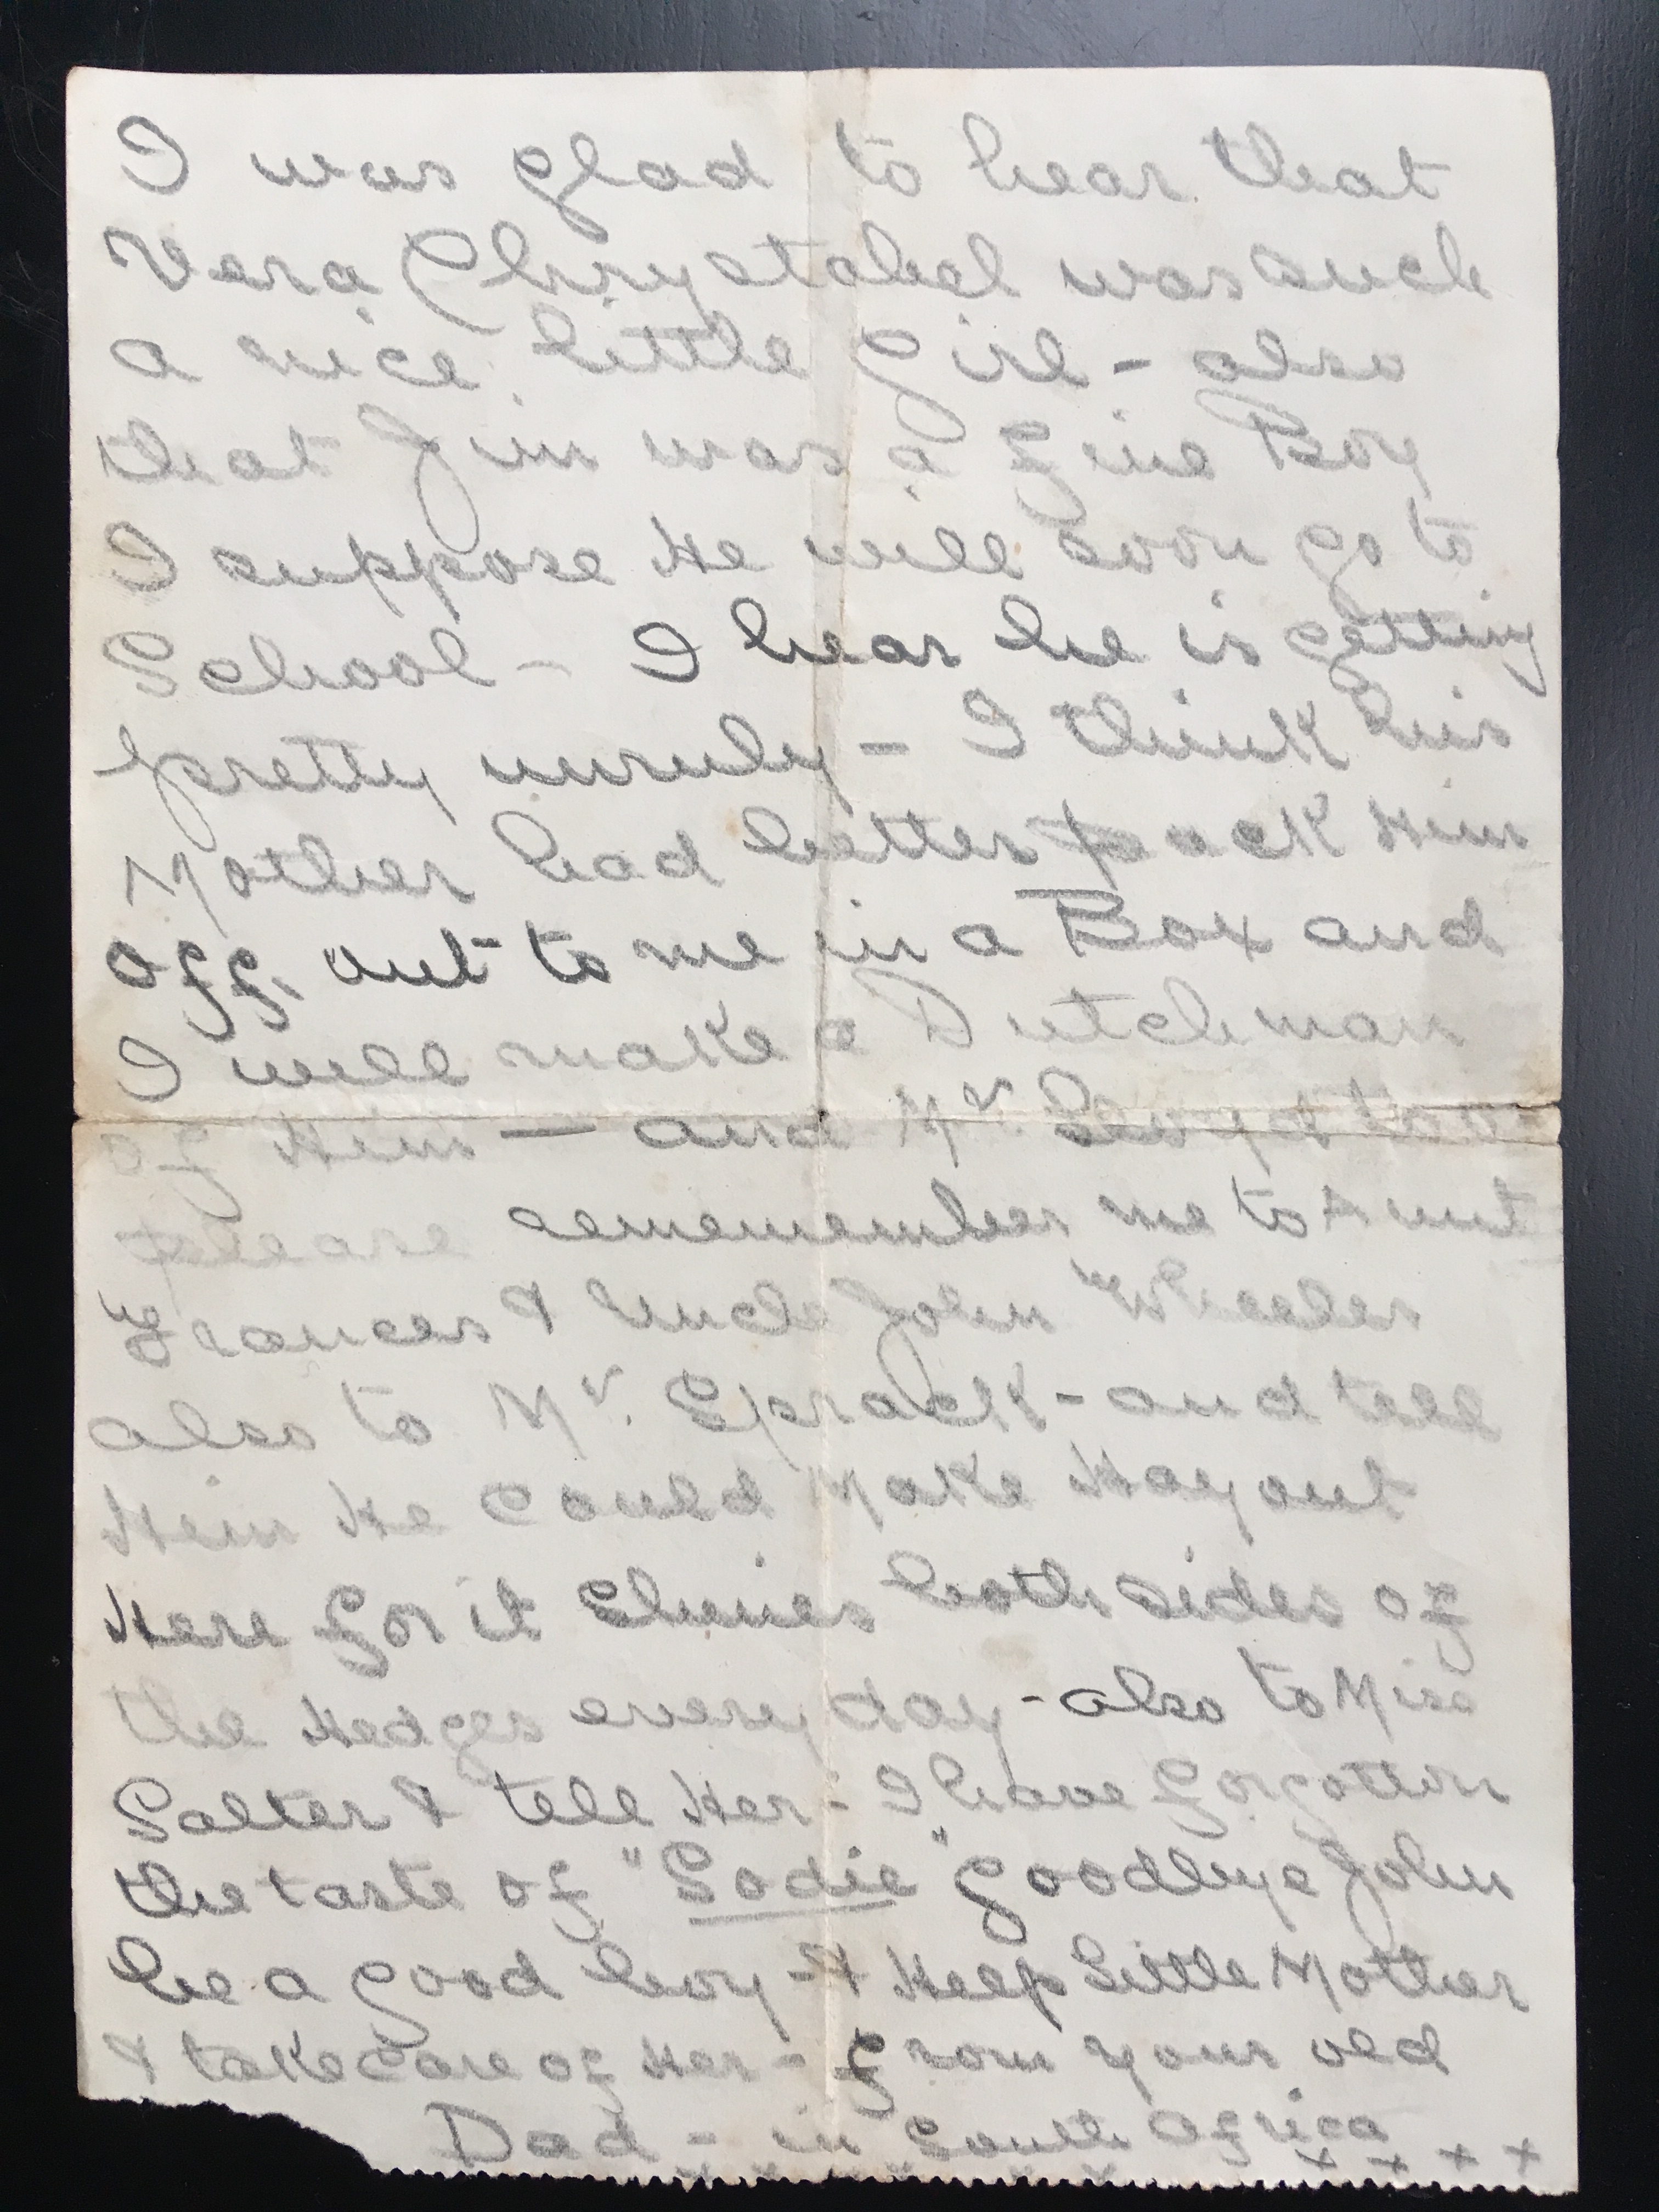 I was glad to hear that
Vera Chrystabel was such
a nice little Girl - also
that Jim was a fine Boy
I suppose He will soon go to
School - I hear he is getting
pretty unruly - I think his
Mother had better pack Him
off, out to me in a Box and
I will make a Dutchman
of Him — and Mr. Lloyd too
please rememember me to Aunt
Frances & Uncle John Wheeler
also to Mr. Sprack - and tell
Him He could Make Hay out
Here for it Shines both sides of
the Hedges every day - also to Miss
Salter & tell Her - I have forgotten
the taste of "Sodie" Goodbye John
be a good boy - & Keep Little Mother
& take care of Her - from your old
Dad - in South Africa
x x x x